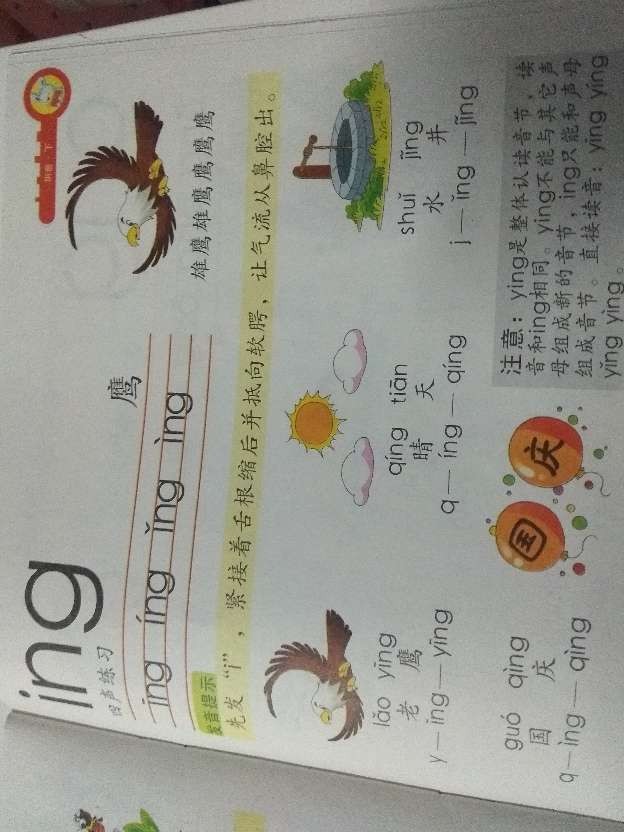 ing
鹰
雄鹰雄鹰鹰鹰鹰
四声练习
īng íng ǐng ìng
发音提示
先发“i”，紧接着舌根缩后并抵向软腭，让气流从鼻腔出。
lǎo yīng
老鹰
y—īng—yīng
qíng tiān
晴天
q—íng—qíng
shuǐ jǐng
水井
j—ǐng—jǐng
guó qìng
国庆
q—ìng—qìng
国庆
注意：ying是整体认读音节，读
音和ing相同。ying不能与其它声
母组成新的音节，ing只能和声母
组成音节。直接读音：yīng yíng
yǐng yìng。